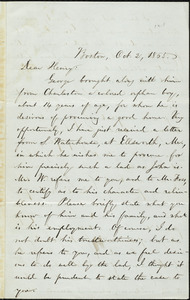 Boston, Oct. 2, 1865.
Dear Henry:
George brought along with him
from Charleston a colored orphan boy,
about 14 years of age, for whom he is
desirous of procuring a good home. Very
opportunely, I have just received a letter
from J. Waterhouse, at Ellsworth, Me.,
in which he wishes me to procure for
him precisely such a lad as John is.
Mr. W. refers me to you, and to Mr.
to certify as to his character and relia-
bleness. Please briefly state what you
know of him and his family, and what
is his employment. Of course, I do
not doubt his trustworthiness; but as
he refers to you, and as we feel desi-
rous to do well by the lad, I thought it
would be prudent to state the case to
you.